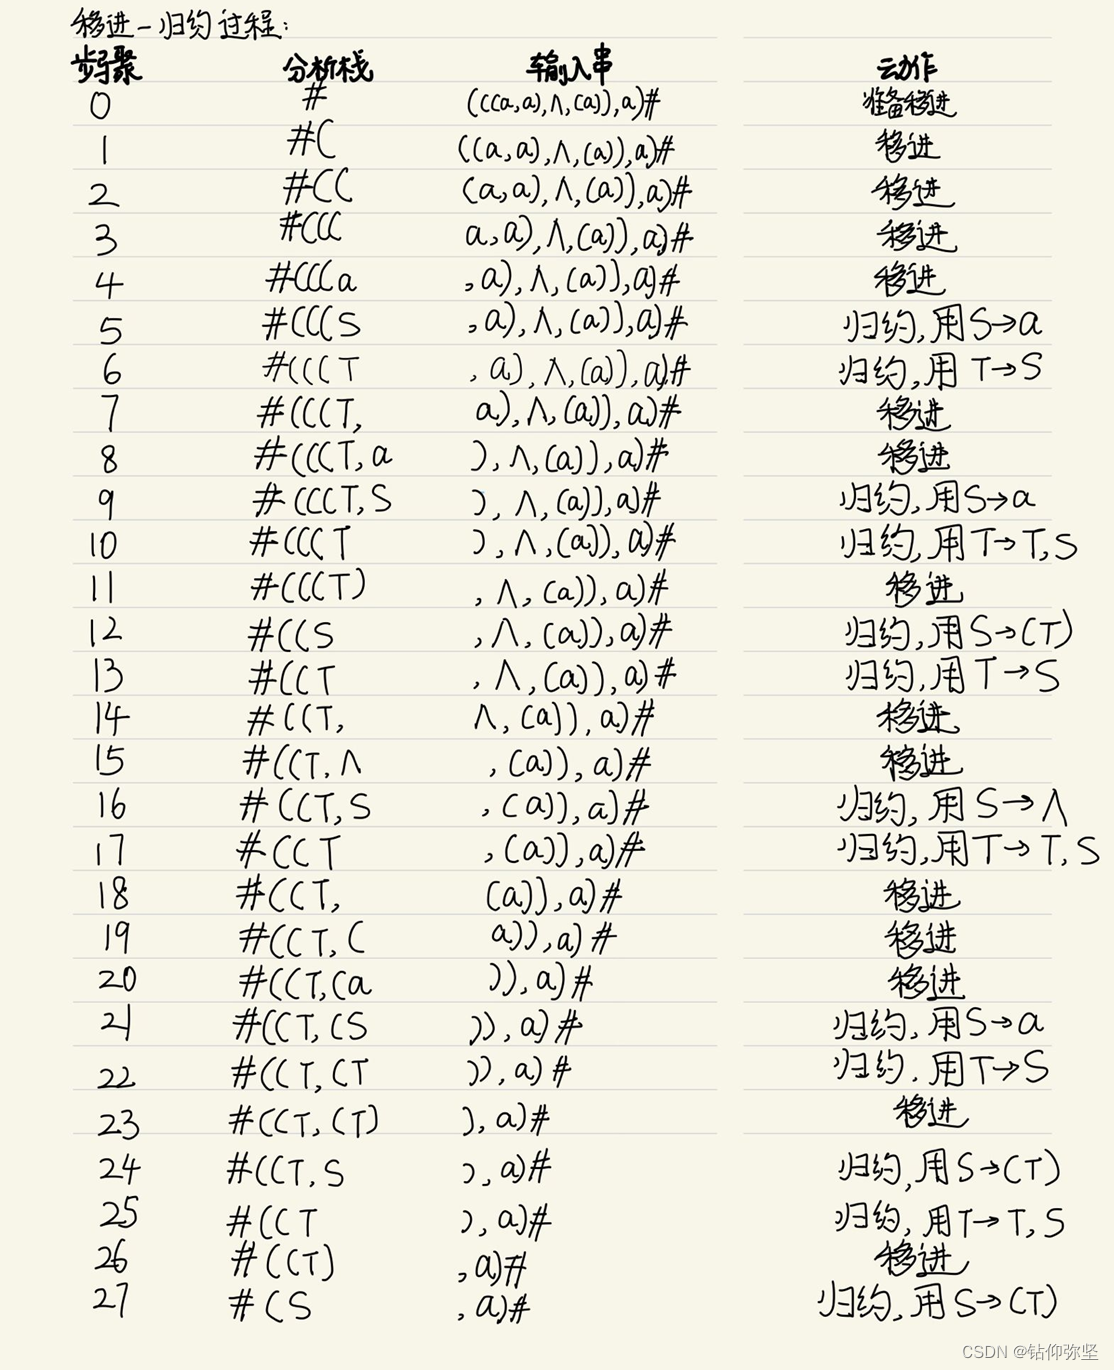 移进-归约过程:
步骤 分析栈 输入串 动作
0 # (((a,a),∧,(a)),a)# 准备移进
1 #( ((a,a),∧,(a)),a)# 移进
2 #(( (a,a),∧,(a)),a)# 移进
3 #((( a,a),∧,(a)),a)# 移进
4 #(((a ,a),∧,(a)),a)# 移进
5 #(((S ,a),∧,(a)),a)# 归约,用S→a
6 #(((T ,a),∧,(a)),a)# 归约,用T→S
7 #(((T, a),∧,(a)),a)# 移进
8 #(((T,a ),∧,(a)),a)# 移进
9 #(((T,S ),∧,(a)),a)# 归约,用S→a
10 #(((T ),∧,(a)),a)# 归约,用T→T,S
11 #(((T) ,∧,(a)),a)# 移进
12 #((S ,∧,(a)),a)# 归约,用S→(T)
13 #((T ,∧,(a)),a)# 归约,用T→S
14 #((T, ∧,(a)),a)# 移进
15 #((T,∧ ,(a)),a)# 移进
16 #((T,S ,(a)),a)# 归约,用S→∧
17 #((T ,(a)),a)# 归约,用T→T,S
18 #((T, (a)),a)# 移进
19 #((T,( a)),a)# 移进
20 #((T,(a )),a)# 移进
21 #((T,(S )),a)# 归约,用S→a
22 #((T,(T )),a)# 归约,用T→S
23 #((T,(T) ),a)# 移进
24 #((T,S ),a)# 归约,用S→(T)
25 #((T ),a)# 归约,用T→T,S
26 #((T) ,a)# 移进
27 #(S ,a)# 归约,用S→(T)
CSDN @钻仰弥坚